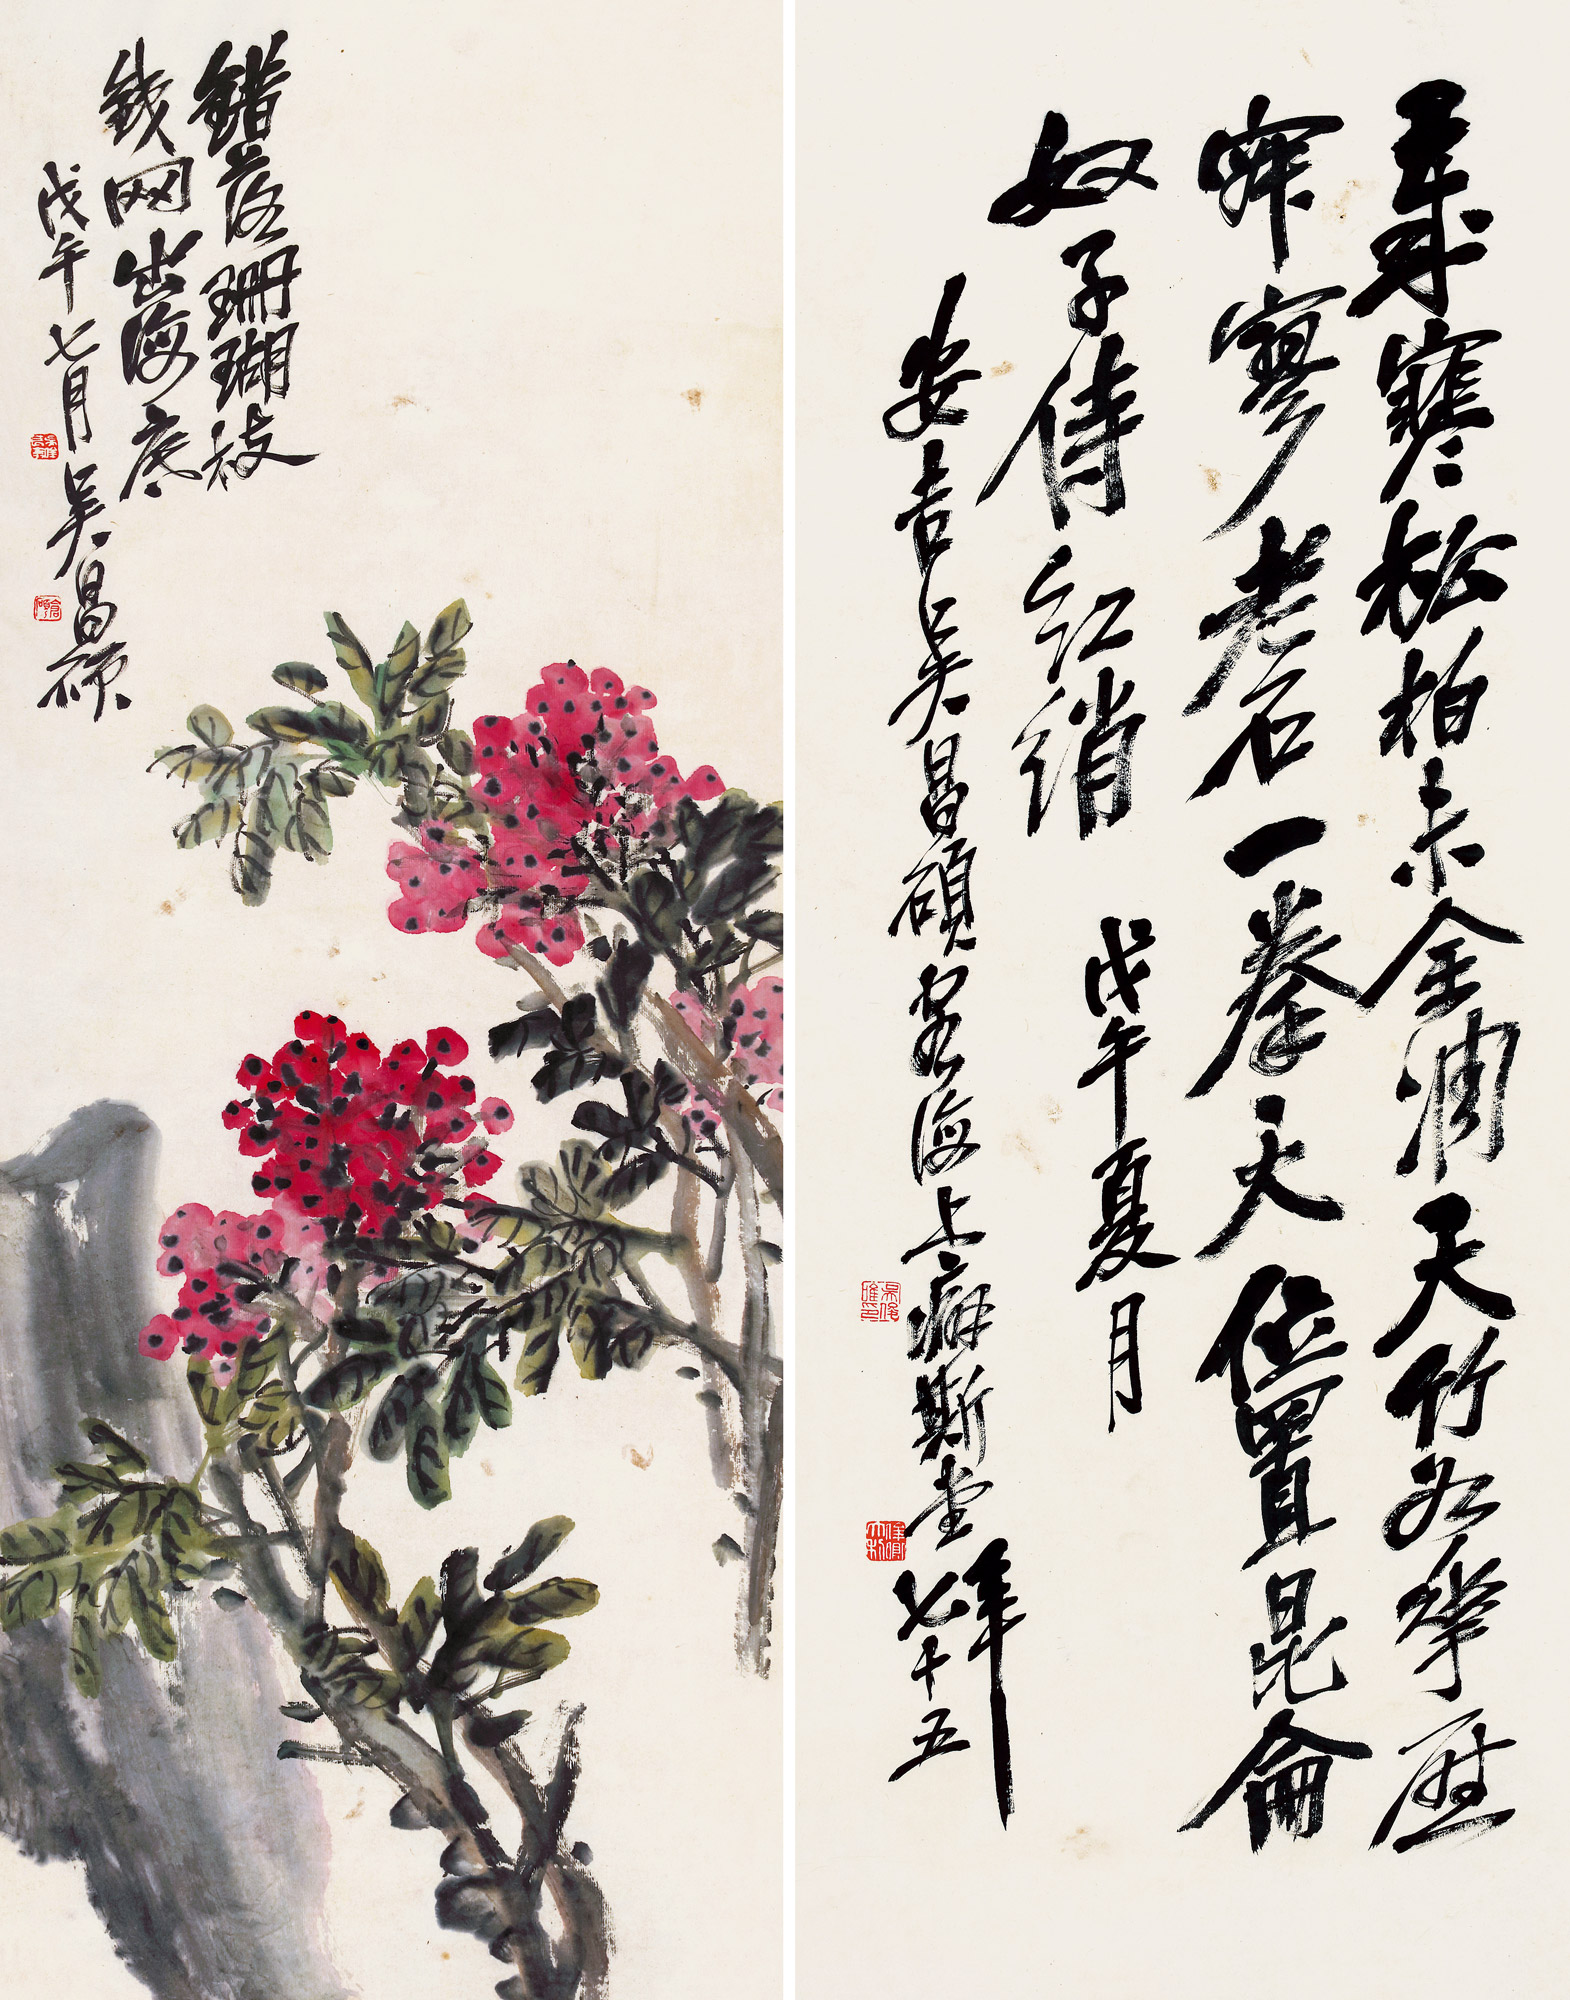 錯落珊瑚枝
鐵网出海底
戊午七月吳昌碩
倉碩
歲寒松柏未全凋天竹華歷
寂寥老石一拳天位置昆侖
奴子侍紅綃 戊午夏月
安吉吳昌碩客海上癖斯堂年七十五